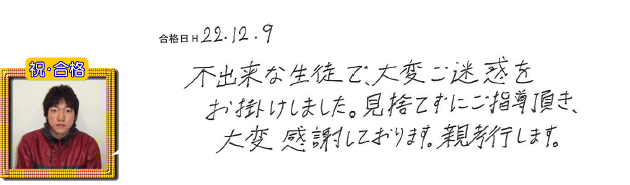 合格日 H 22.12.9
祝・合格
不出来な生徒で、大変ご迷惑を
お掛けしました。見捨てずにご指導頂き、
大変 感謝しております。親孝行します。